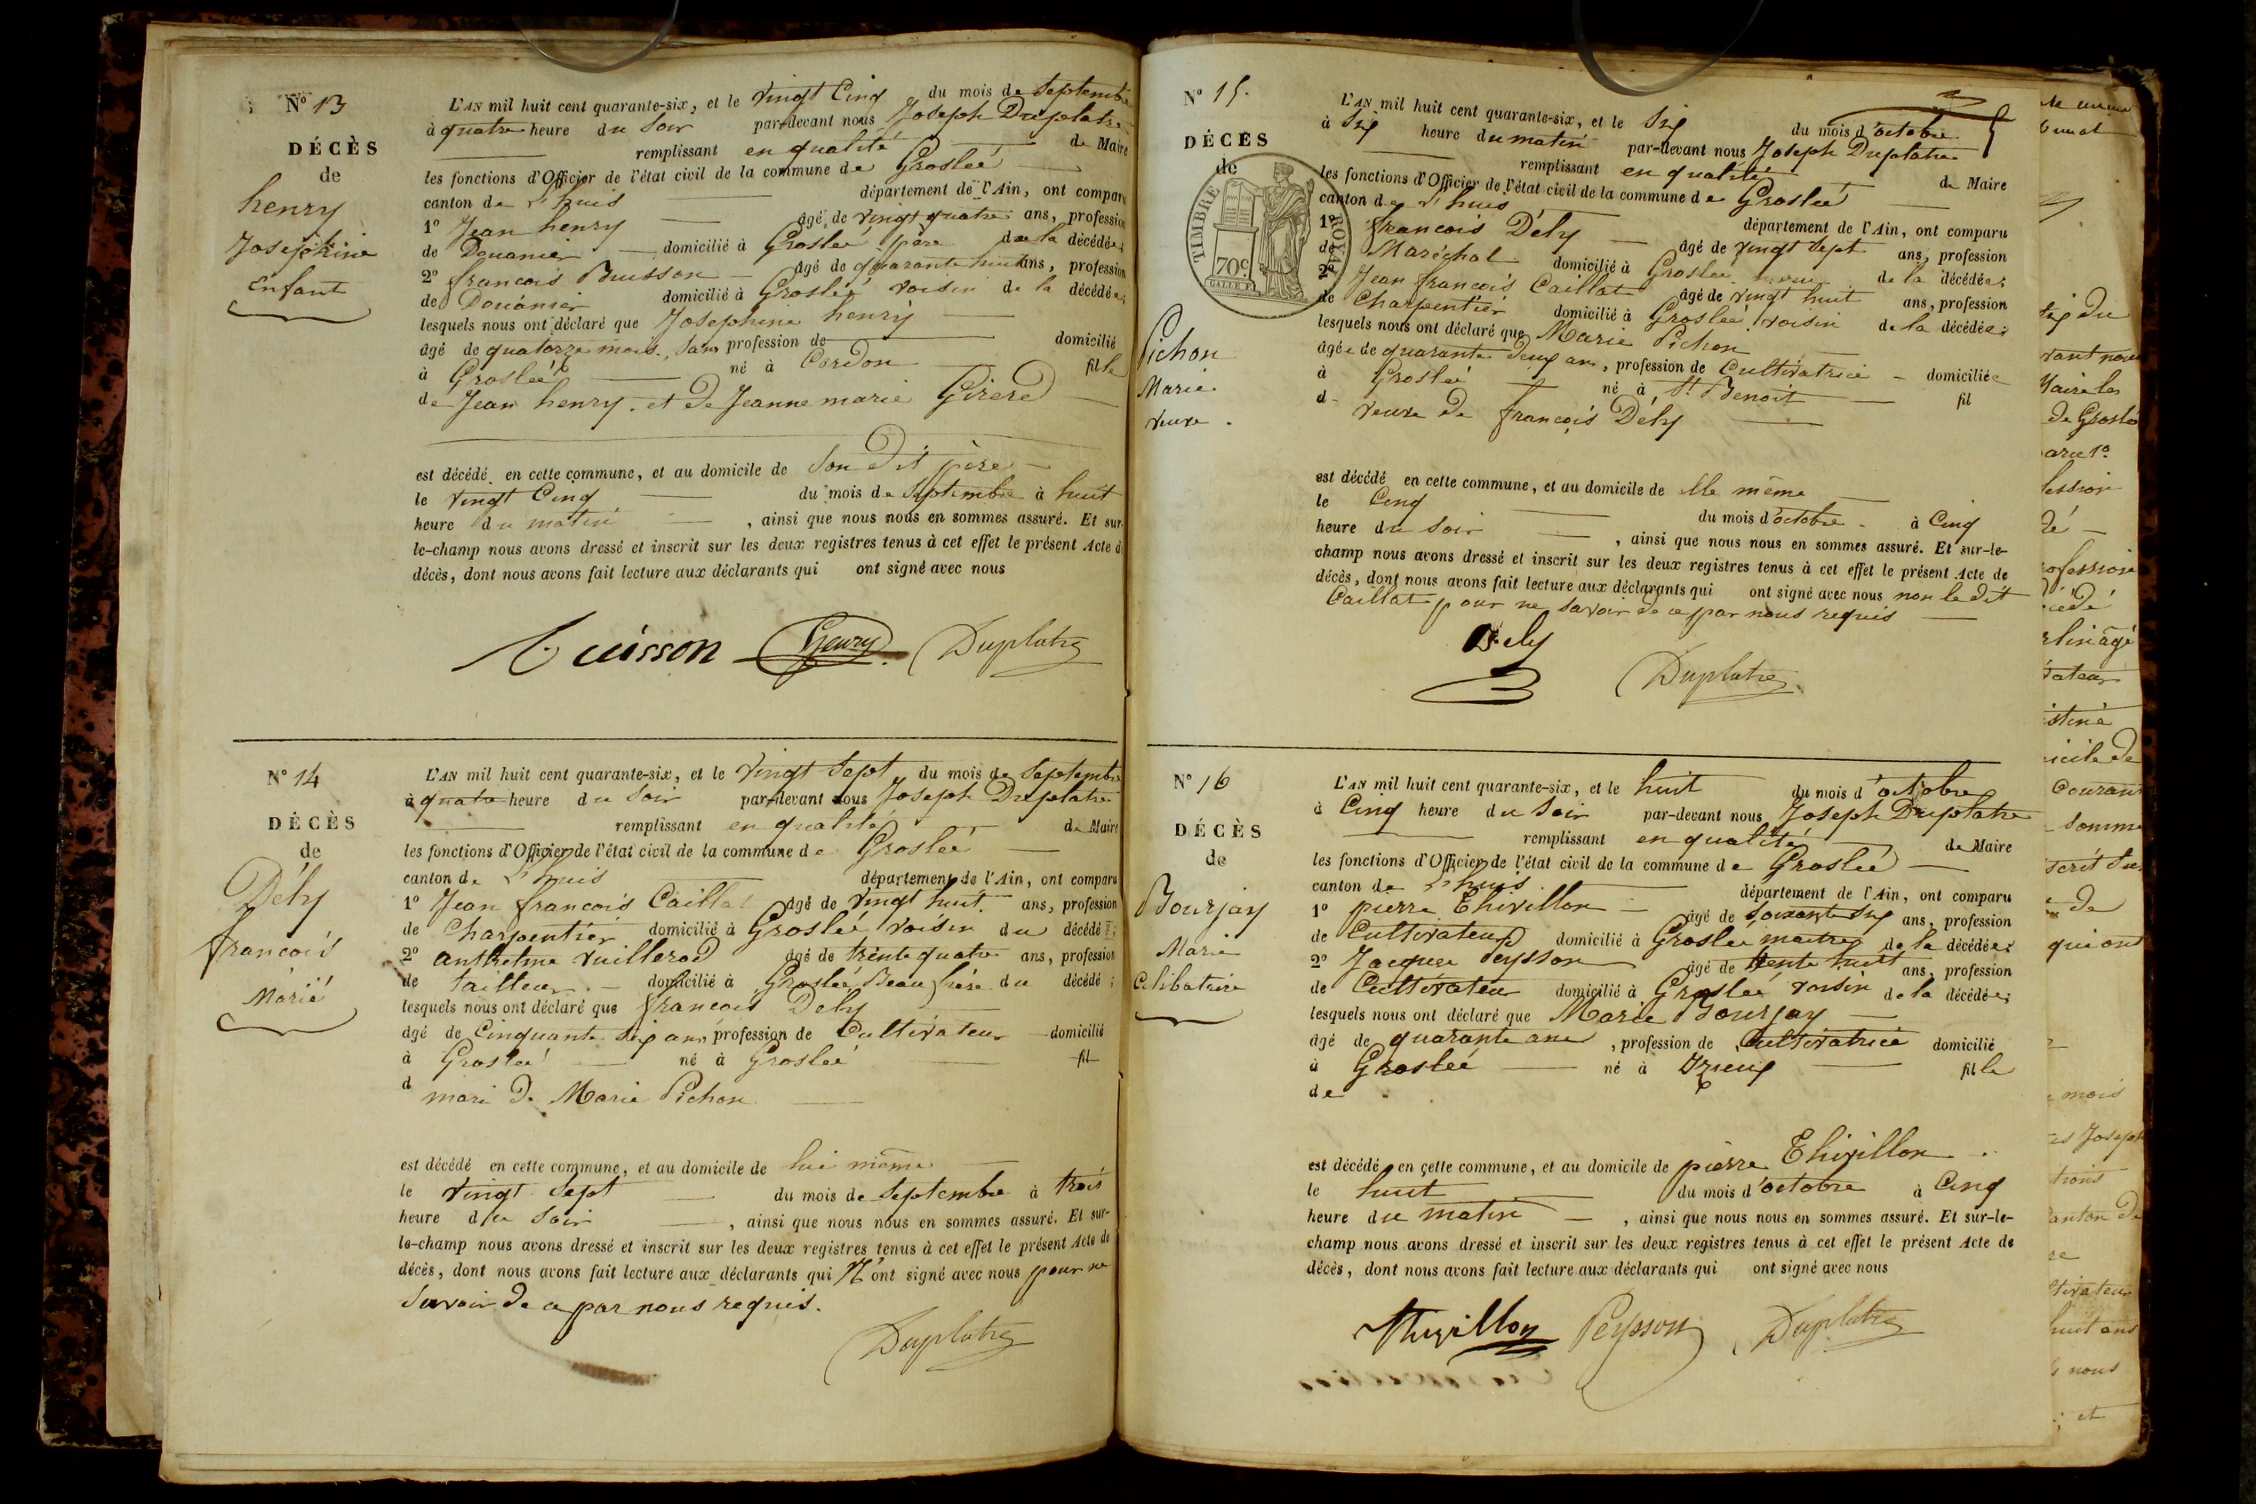 N° 13
DÉCÈS
de
henry
Josephine
enfant
L'AN mil huit cent quarante-six, et le vingt Cinq du mois de Septembre
à quatre heure du Soir par-devant nous Joseph Duplatre
remplissant en qualité de Maire
les fonctions d'Officier de l'état civil de la commune de Groslée
canton de L'huis département de l'Ain, ont comparu
1° Jean henry âgé de vingt quatre ans, profession
de Douanier domicilié à Groslée père de la décédée;
2° francois Buisson âgé de quarante huit ans, profession
de Douánier domicilié à Groslée voisin de la décédée;
lesquels nous ont déclaré que Josephine henry
âgé de quatorze mois, San profession de domicilié
à Groslée né à Cordon fille
de Jean henry. et de Jeanne marie Girerd
est décédé en cette commune, et au domicile de Son dit père
le vingt Cinq du mois de Septembre à huit
heure du matin, ainsi que nous nous en sommes assuré. Et sur-
le-champ nous avons dressé et inscrit sur les deux registres tenus à cet effet le présent Acte de
décès, dont nous avons fait lecture aux déclarants qui ont signé avec nous
Buisson henry Duplatre
N° 14
DÉCÈS
de
Dély
francois
Marié
L'AN mil huit cent quarante-six, et le vingt Sept du mois de Septembre
à quatre heure du Soir par-devant nous Joseph Duplatre
remplissant en qualité de Maire
les fonctions d'Officier de l'état civil de la commune de Groslée
canton de L'huis département de l'Ain, ont comparu
1° Jean francois Caillat âgé de vingt huit ans, profession
de Charpentier domicilié à Groslée voisin du décédé;
2° anthelme vuillerod âgé de trente quatre ans, profession
de tailleur domicilié à Groslée Beau frère du décédé;
lesquels nous ont déclaré que francois Dely
âgé de Cinquante Six ans, profession de Cultivateur domicilié
à Groslée né à Groslée fil
d mari de Marie Pichon
est décédé en cette commune, et au domicile de lui même
le vingt Sept du mois de Septembre à trois
heure du Soir, ainsi que nous nous en sommes assuré. Et sur-
le-champ nous avons dressé et inscrit sur les deux registres tenus à cet effet le présent Acte de
décès, dont nous avons fait lecture aux déclarants qui N'ont signé avec nous pour ne
Savoir de ce par nous requis.
Duplatre
N° 15.
DÉCÈS
de
TIMBRE ROYAL
70c
Pichon
Marie
veuve.
L'AN mil huit cent quarante-six, et le Six du mois d'octobre
à Six heure du matin par-devant nous Joseph Duplatre
remplissant en qualité de Maire
les fonctions d'Officier de l'état civil de la commune de Groslée
canton de L'huis département de l'Ain, ont comparu
1° francois Dély âgé de vingt Sept ans, profession
de Maréchal domicilié à Groslée neveu de la décédée;
2° Jean francois Caillat âgé de vingt huit ans, profession
de Charpentier domicilié à Groslée voisin de la décédée;
lesquels nous ont déclaré que Marie Pichon
âgée de quarante Deux ans, profession de Cultivatrice domiciliée
à Groslée né à St. Benoit fil
d veuve de francois Dély
est décédé en cette commune, et au domicile de elle même
le Cinq du mois d'octobre à Cinq
heure du Soir, ainsi que nous nous en sommes assuré. Et sur-le-
champ nous avons dressé et inscrit sur les deux registres tenus à cet effet le présent Acte de
décès, dont nous avons fait lecture aux déclarants qui ont signé avec nous non le dit
Caillat pour ne savoir de ce par nous requis
Dely Duplatre
N° 16
DÉCÈS
de
Bourjay
Marie
Celibataire
L'AN mil huit cent quarante-six, et le huit du mois d'octobre
à Cinq heure du Soir par-devant nous Joseph Duplatre
remplissant en qualité de Maire
les fonctions d'Officier de l'état civil de la commune de Groslée
canton de L'huis département de l'Ain, ont comparu
1° pierre Thivillon âgé de Soixante Six ans, profession
de Cultivateur domicilié à Groslée maitre de la décédée;
2° Jacques Peysson âgé de trente huit ans, profession
de Cultivateur domicilié à Groslée voisin de la décédée;
lesquels nous ont déclaré que Marie Bourjay
âgé de quarante ans, profession de Cultivatrice domicilié
à Groslée né à Izieux fille
de
est décédé en cette commune, et au domicile de pierre Thivillon
le huit du mois d'octobre à Cinq
heure du matin, ainsi que nous nous en sommes assuré. Et sur-le-
champ nous avons dressé et inscrit sur les deux registres tenus à cet effet le présent Acte de
décès, dont nous avons fait lecture aux déclarants qui ont signé avec nous
Thivillon Peysson Duplatre